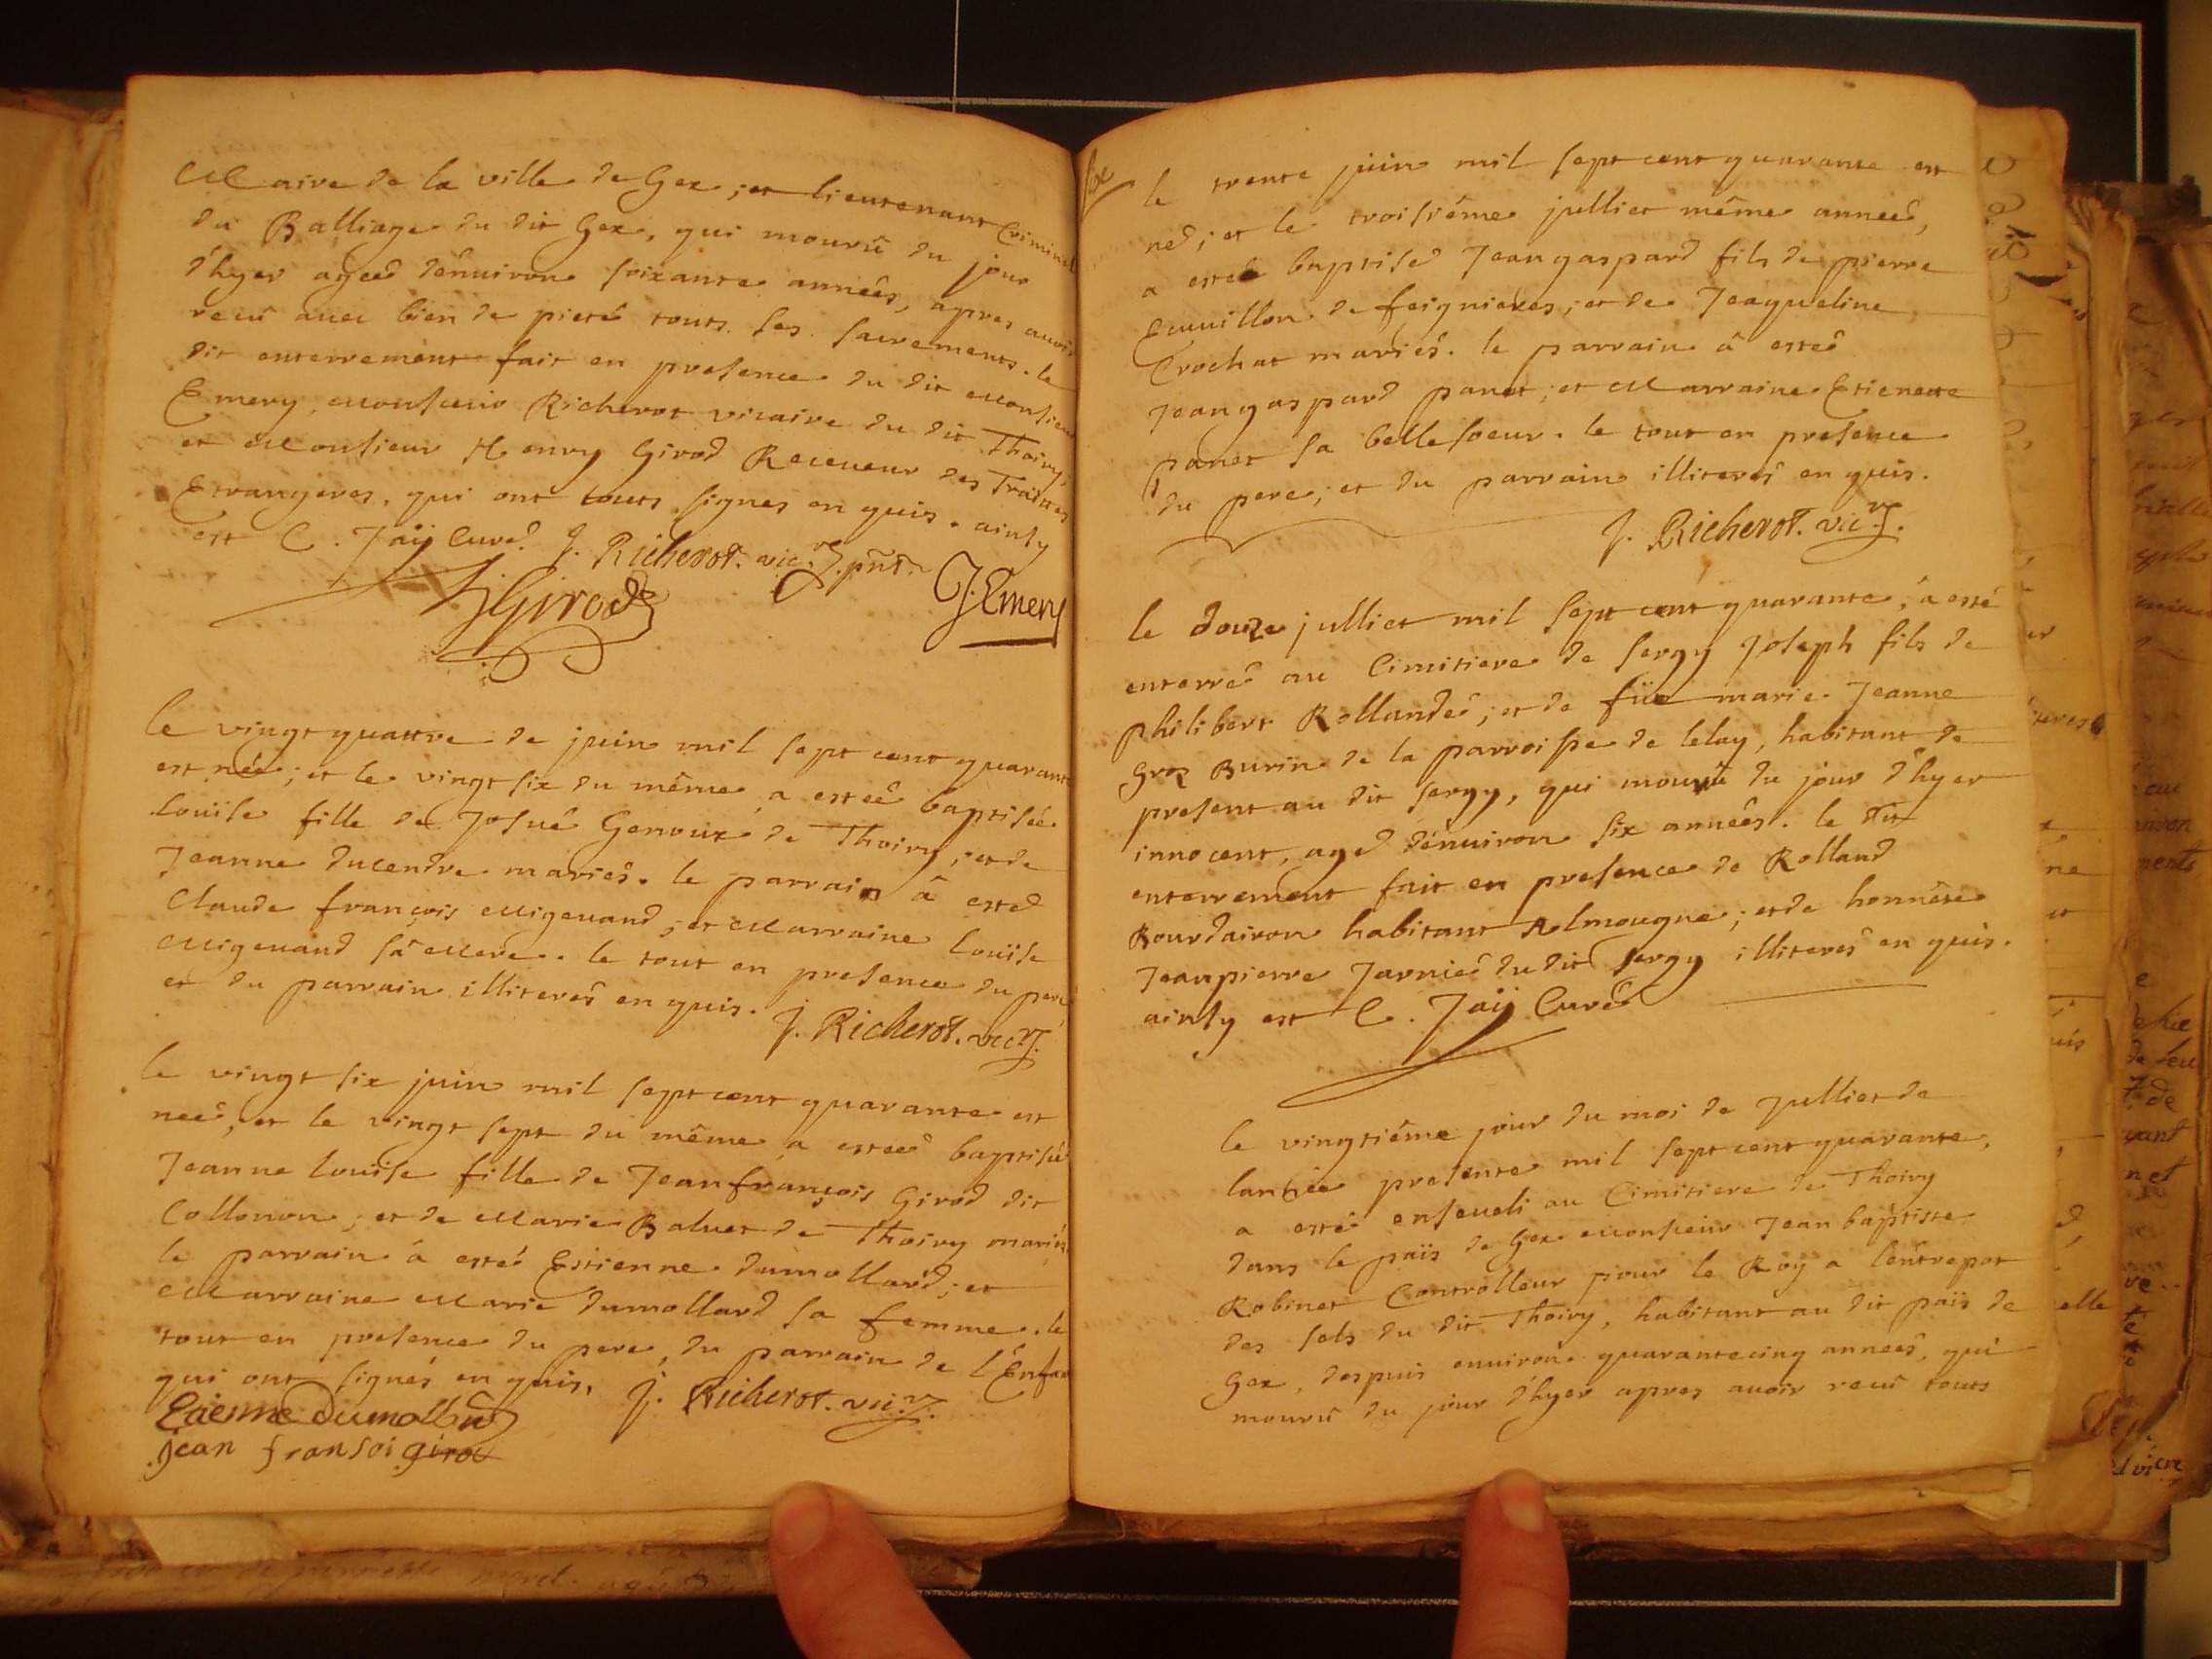 Maire de la ville de Gex ; et lieutenant Criminel
du Balliage du dit Gex, qui mourû du jour
d'hyer ageé d'énuiron soixante anneés, apres auoir
receû auec bien de pieté touts les sacrements. le
dit enterrement fait en presence du dit Monsieur
Emery, Monsieur Richerot vicaire du dit Thoiry,
et Monsieur Henry Girod Receueur des Traittes
Etrangeres, qui ont touts signes en quis. ainsy
est C. Jaÿ Curé. J. Richerot. vic.re pnt.
hGirod J. Emery
le vingt quattre de juin mil sept cent quarante
est née ; et le vingt six du même a esteé baptisée
Louïse fille de Josué Genoux de Thoiry ; et de
Jeanne Ducendre mariés. le parrain â esté
Claude françois Migeuand ; et Marraine Louïse
Migeuand sâ Mere. le tout en presence du pere,
et du parrain illiterés en quis.
J. Richerot. vic.re
le vingt six juin mil sept cent quarante est
neé, et le vingt sept du même a esteé baptisée
Jeanne Louïse fille de Jeanfrançois Girod dit
Collonon ; et de Marie Baluet de Thoiry mariés
le parrain â esté Estienne Dumollard ; et
Marraine Marie Dumollard sa femme. le
tout en presence du pere, du parrain de l'Enfant
qui ont signés en quis, J. Richerot. vic.re
Etienne Dumollard
Jean fransoi girod
le trente juin mil sept cent quarante est
né ; et le troisiéme julliet même anneé,
a esté baptisé Jeangaspard fils de pierre
Ecuuillon de feignieres ; et de Jeaqueline
Crochat mariés. le parrain â esté
Jeangaspard panet ; et Marraine Etienette
panet sa belle soeur. le tout en presence
du pere ; et du parrain illiterés en quis.
J. Richerot. vic.re
le douze julliet mil sept cent quarante, a esté
enterré au Cimitiere de sergy Joseph fils de
philibert Rollandé ; et de füe marie Jeanne
groz Burin de la parroisse de lelay, habitant de
present au dit sergy, qui mourû du jour d'hyer
innocent, agé d'énuiron six anneés. le dit
enterrement fait en presence de Rolland
Bourdairon habitant Almougne ; et de honnête
Jeanpierre Jarnié du dit sergy illiterés en quis.
ainsy est C. Jaÿ Curé
le vingtiéme jour du moi de Julliet de
lannée presente mil sept cent quarante,
a esté enseueli au Cimitiere de Thoiry
dans le païs de Gex Monsieur Jean baptiste
Robinet Controlleur pour le Roy a l'entrepot
des sels du dit Thoiry, habitant au dit païs de
Gex, despuis enuiron quarantecinq anneés, qui
mourû du jour d'hyer apres auoir receû touts